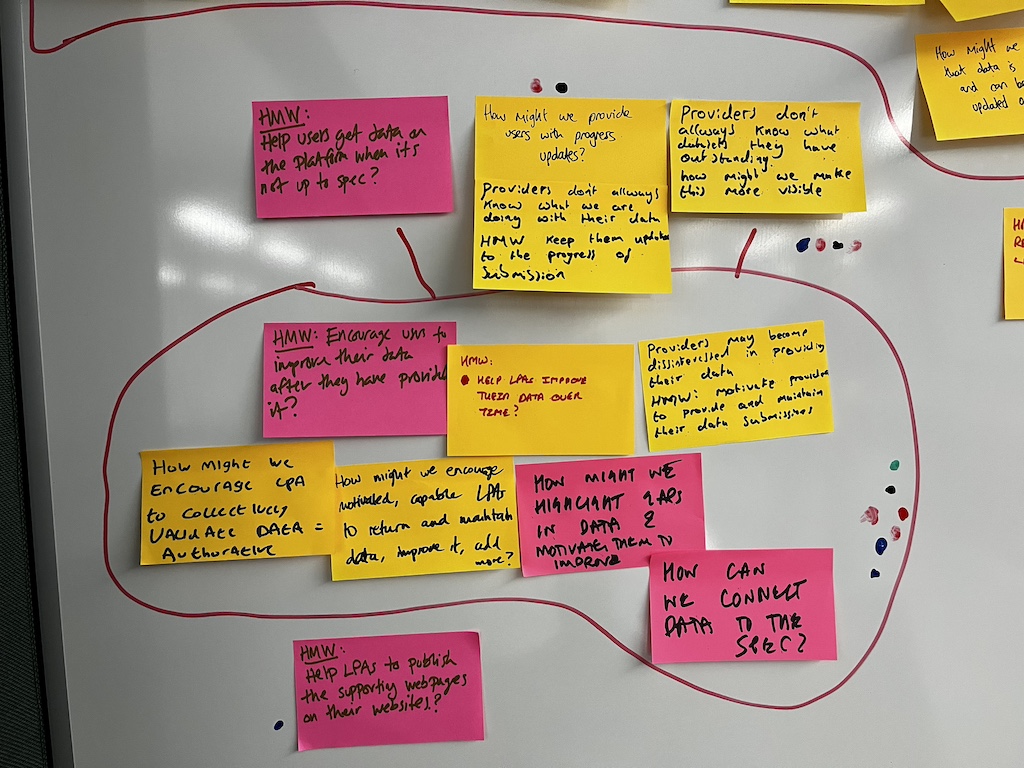 How might we
that data is
and can be
updated
HMW:
Help users get data on
the Platform when it's
not up to spec?
How might we provide
users with progress
updates?
Providers don't allways
know what we are
doing with their data
HMW keep them update
to the progress of
submission
Providers don't
allways know what
datasets they have
outstanding.
how might we make
this more visible
HMW: Encourage users to
improve their data
after they have provided
it?
HMW:
HELP LPAs IMPROVE
THEIR DATA OVER
TIME?
Providers may become
dissinterested in providing
their data
HMW: motivate provides
to provide and maintain
their data submissions
How might we
Encourage LPA
to collectively
VALIDATE DATA =
AUTHORATIVE
How might we encourage
motivated, capable LPAs
to return and maintain
data, improve it, add
more?
HOW MIGHT WE
HIGHLIGHT GAPS
IN DATA &
MOTIVATE THEM TO
IMPROVE
HOW CAN
WE CONNECT
DATA TO THE
SPEC?
HMW:
Help LPAs to publish
the supporting webpages
on their websites?